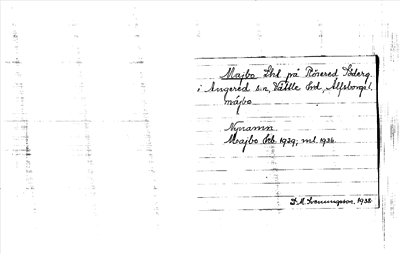 Majbo Lht på Rösered Söderg.
i Angered sn, Vättle hd, Älfsborgs l.
májbo
Nynamn.
Majbo Eb. 1929; ml. 1936.
D.M. Svenungsson. 1938